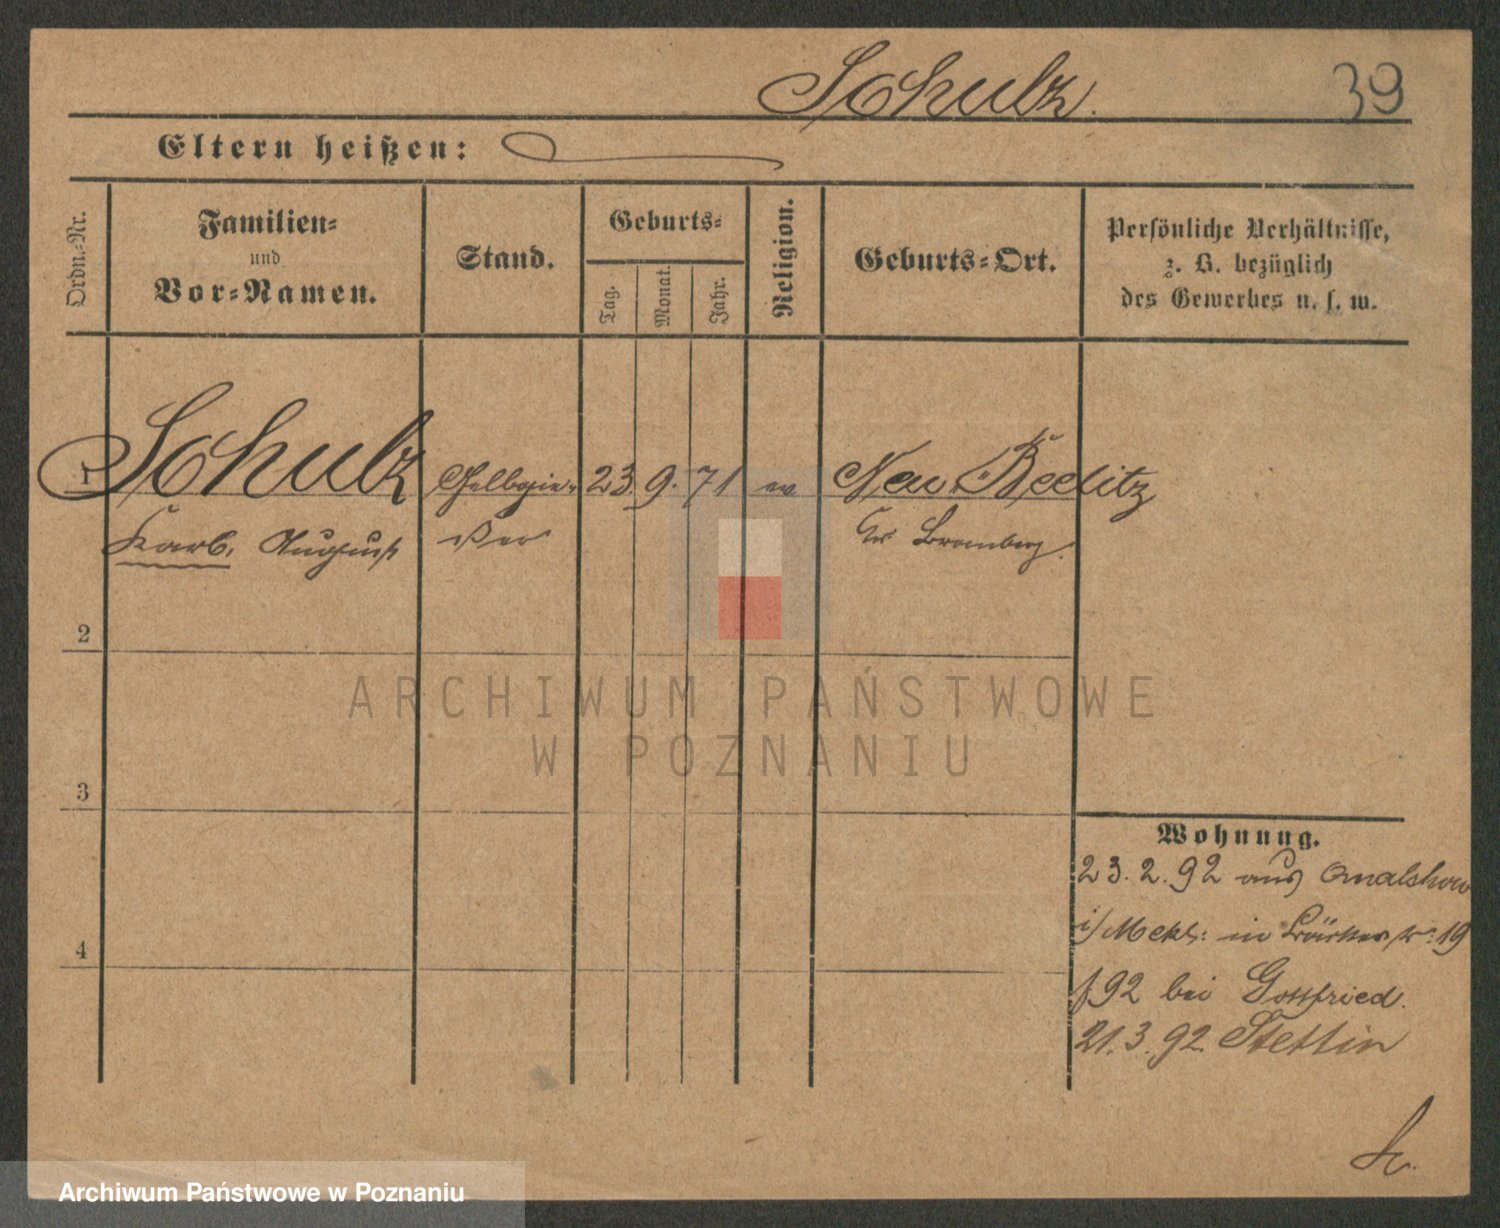 Schulz.
39
Eltern heißen:
Ordn.-Nr.
Familien-
und
Vor-Namen.
Stand.
Geburts-
Tag.
Monat.
Jahr.
Religion.
Geburts-Ort.
Persönliche Verhältnisse,
z. B. bezüglich
des Gewerbes u. s. w.
1
Schulz
Gelbgie-
23. 9. 71
ev
Neu Beelitz
Karl, August
ßer
Kr. Bromberg.
2
ARCHIWUM PAŃSTWOWE
W POZNANIU
3
Wohnung.
23. 2. 92 aus
i/Meckl: in 19
92 bei Gottfried.
4
21. 3. 92 Stettin
Archiwum Państwowe w Poznaniu